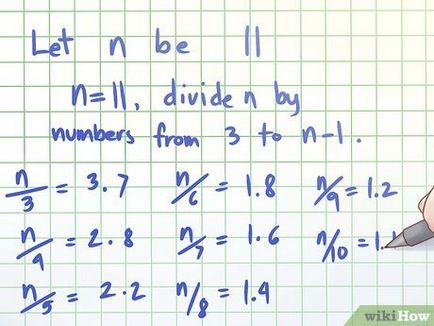 Let n be 11
n=11, divide n by
numbers from 3 to n-1.
n/3 = 3.7 n/6 = 1.8 n/9 = 1.2
n/4 = 2.8 n/7 = 1.6 n/10 = 1.1
n/5 = 2.2 n/8 = 1.4
wikiHow